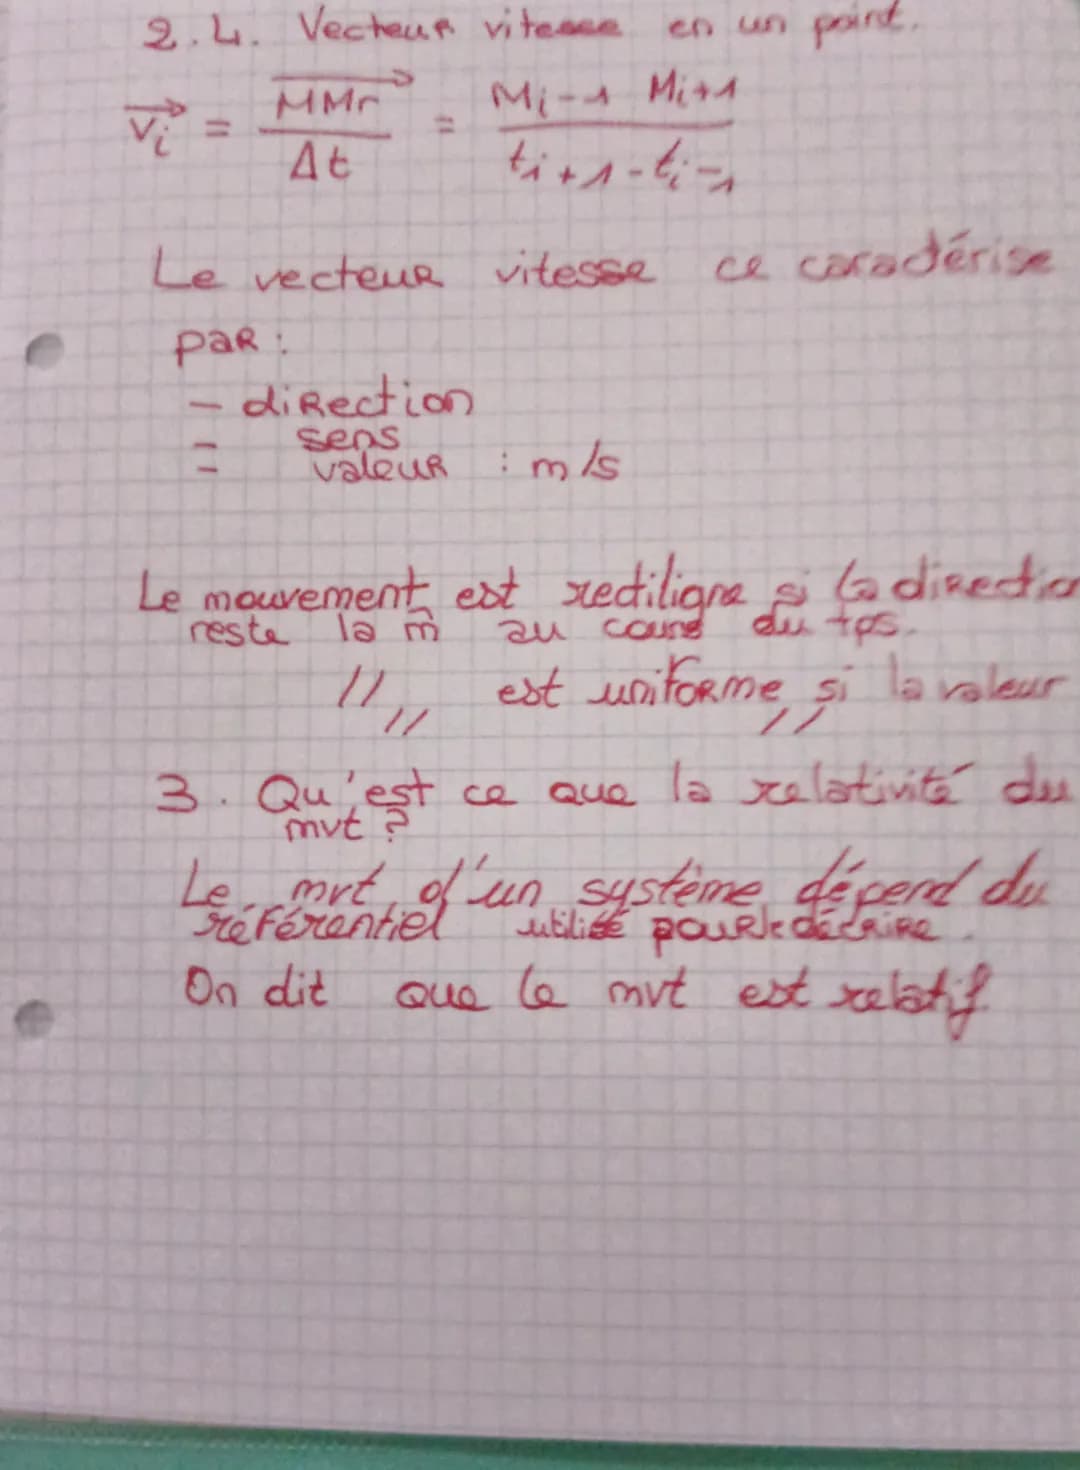 2.4. Vecteur vitesse en un point.
Vi = MM' / Δt = Mi-1 Mi+1 / ti+1-ti-1
Le vecteur vitesse ce caractérise
par :
- direction
- sens
- valeur : m/s
Le mouvement est rectiligne si la direction
reste la m̂ au cours du tps.
// // est uniforme si la valeur //
3. Qu'est ce que la relativité du
mvt ?
Le mvt d'un système dépend du
référentiel utilisé pour le décrire.
On dit que le mvt est relatif